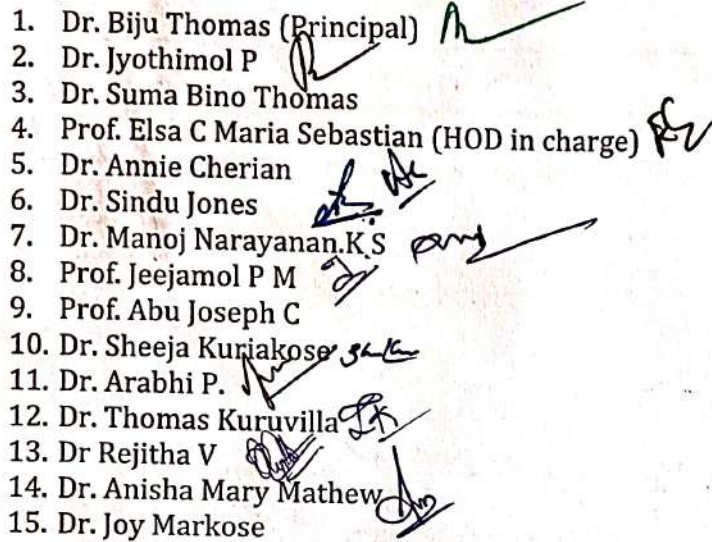 1. Dr. Biju Thomas (Principal)
2. Dr. Jyothimol P
3. Dr. Suma Bino Thomas
4. Prof. Elsa C Maria Sebastian (HOD in charge)
5. Dr. Annie Cherian
6. Dr. Sindu Jones
7. Dr. Manoj Narayanan.K.S
8. Prof. Jeejamol P M
9. Prof. Abu Joseph C
10. Dr. Sheeja Kuriakose
11. Dr. Arabhi P.
12. Dr. Thomas Kuruvilla
13. Dr Rejitha V
14. Dr. Anisha Mary Mathew
15. Dr. Joy Markose